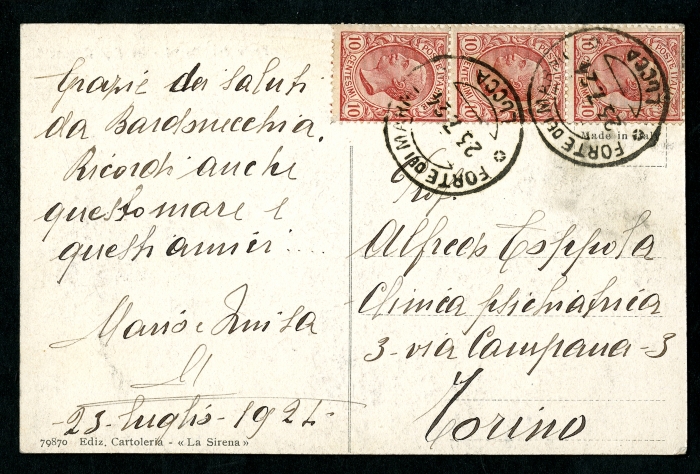 Grazie dei saluti
da Bardonecchia.
Ricordi anche
questo mare e
questi amici....
Mario e Luisa
23 luglio - 1924
79870 Ediz. Cartoleria - « La Sirena »
CENTESIMI 10
POSTE ITALIANE
FORTE DEI MARMI
LUCCA
23.7.24
Made in Italy
Prof.
Alfredo Coppola
Clinica psichiatrica
3 - via Campana - 3
Torino